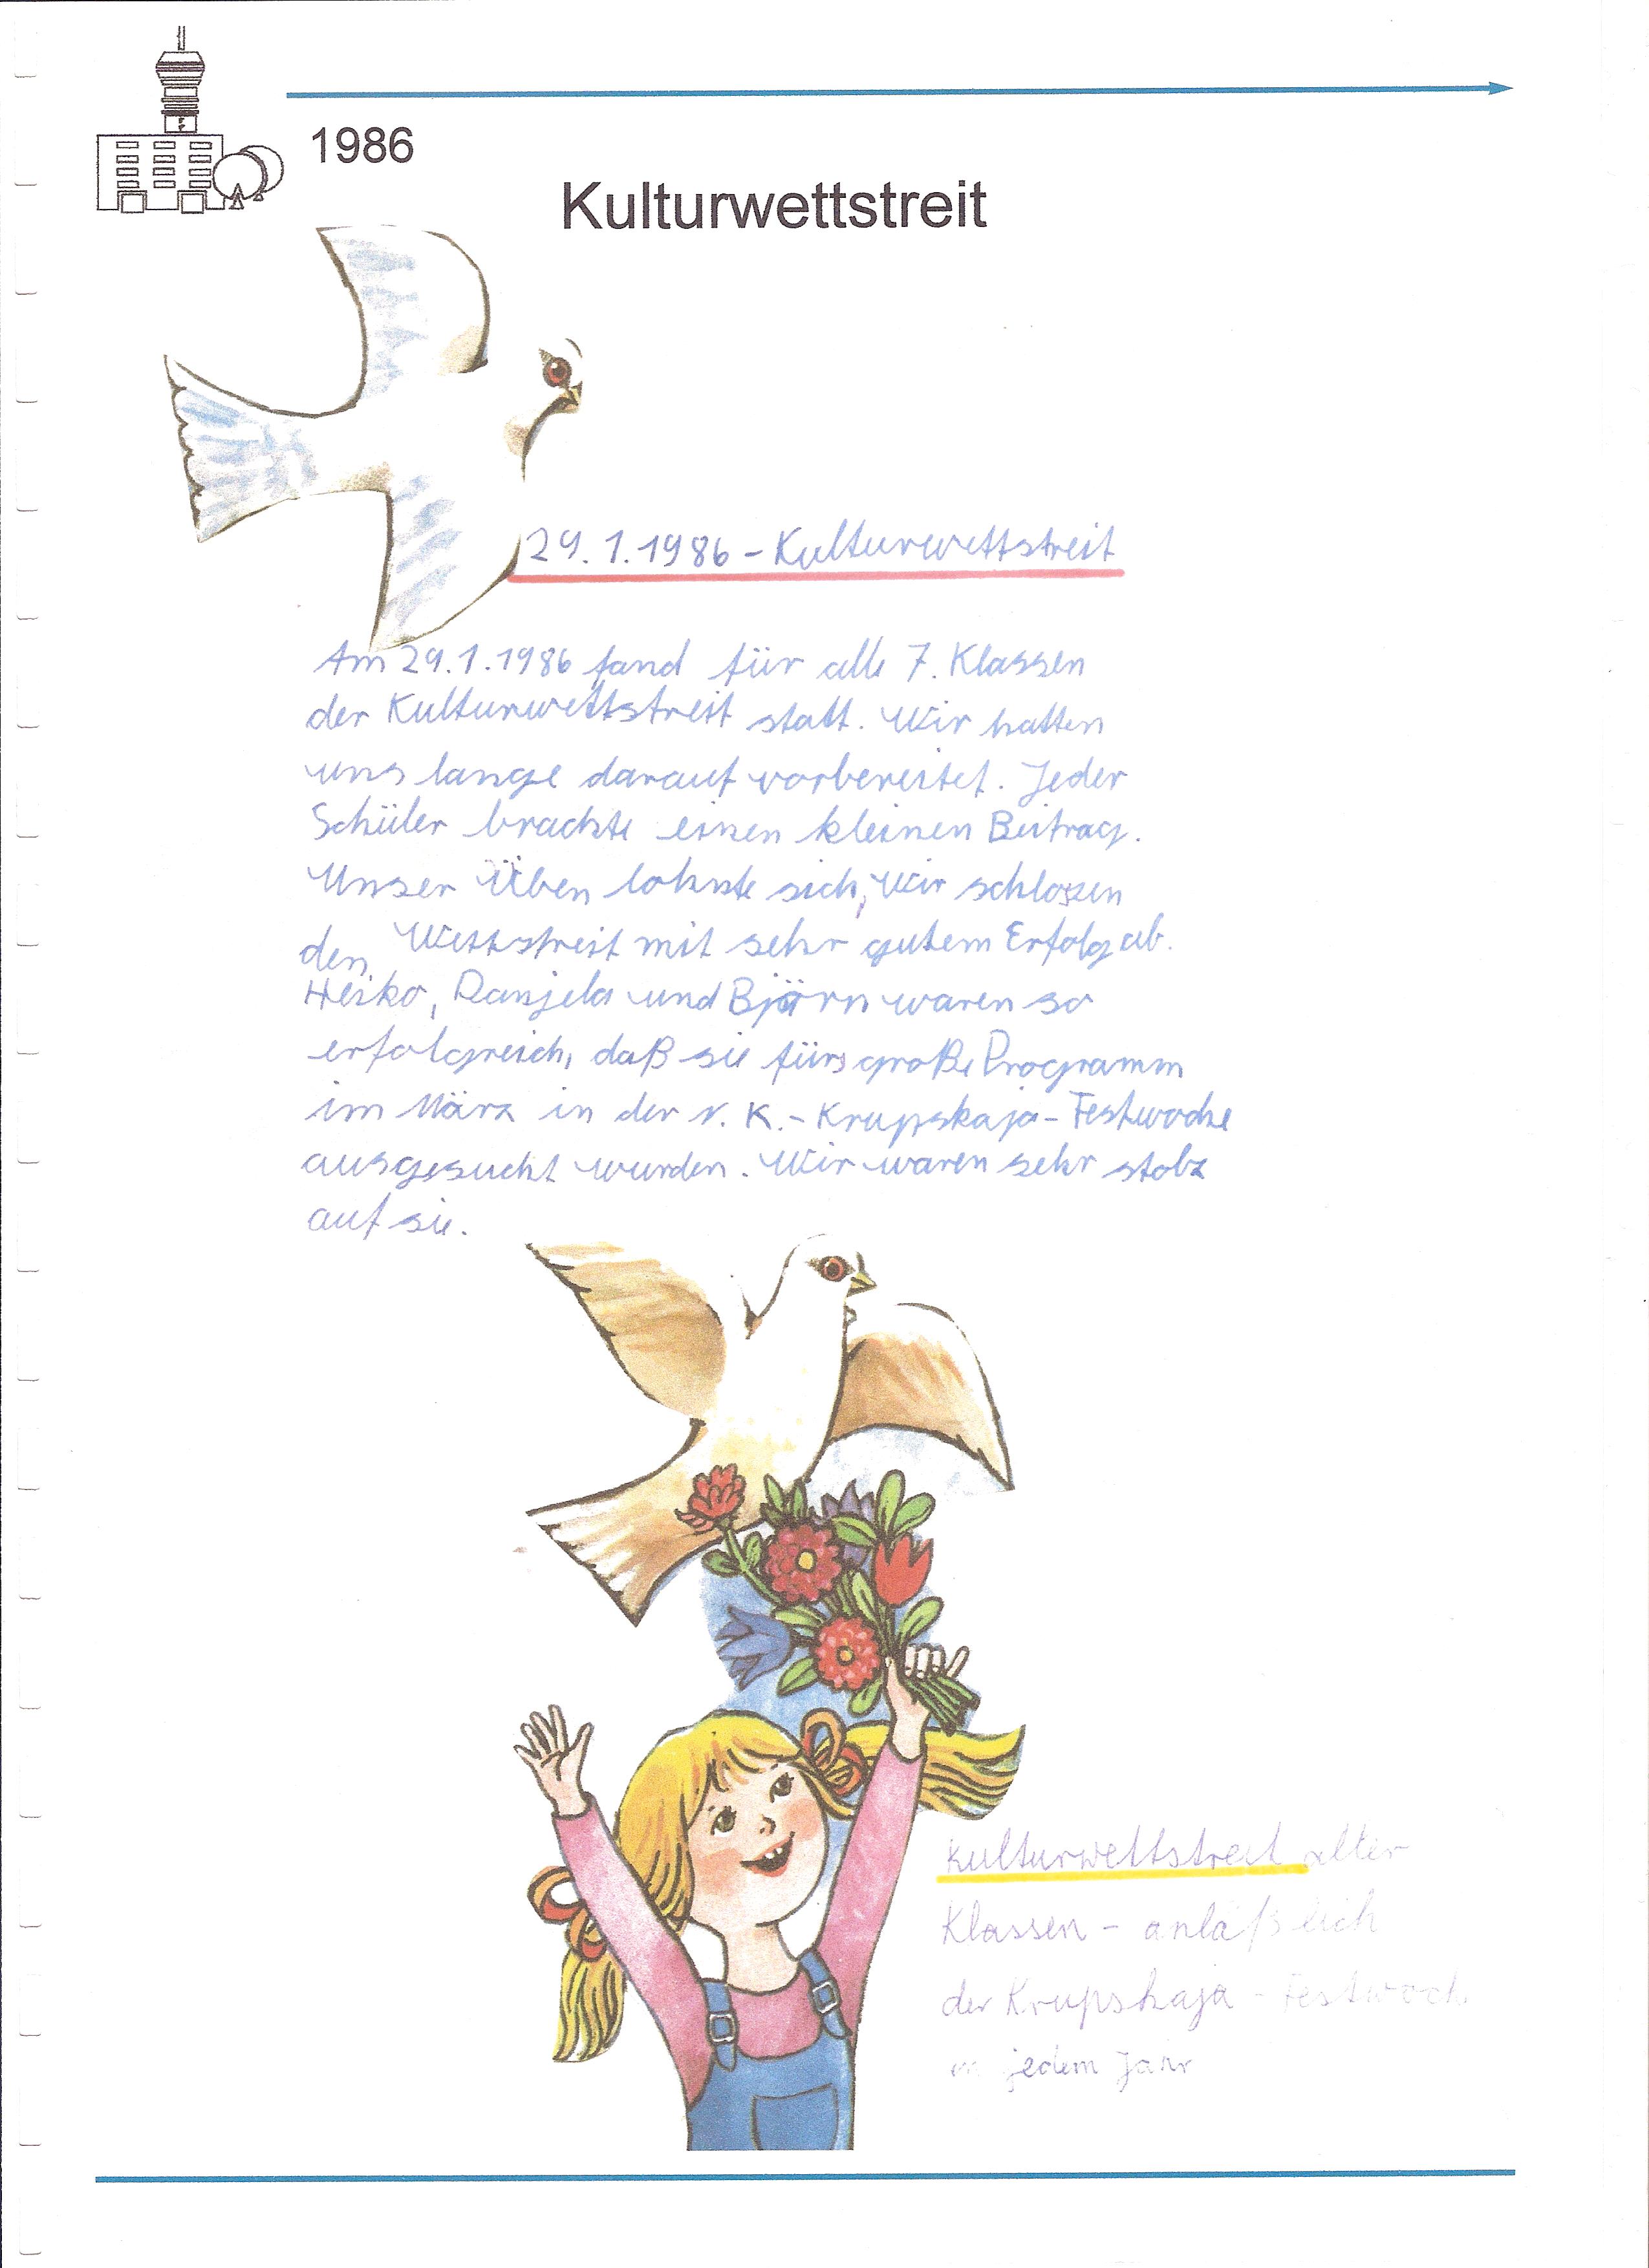 1986
Kulturwettstreit
29.1.1986 - Kulturwettstreit
Am 29.1.1986 fand für alle 7. Klassen
der Kulturwettstreit statt. Wir hatten
uns lange darauf vorbereitet. Jeder
Schüler brachte einen kleinen Beitrag.
Unser Üben lohnte sich, Wir schlossen
den Wettstreit mit sehr gutem Erfolg ab.
Heiko, Danjela und Björn waren so
erfolgreich, daß sie fürs große Programm
im März in der N. K. - Krupskaja - Festwoche
ausgesucht wurden. Wir waren sehr stolz
auf sie.
Kulturwettstreit aller
Klassen - anläßlich
der Krupskaja - Festwoche
in jedem Jahr